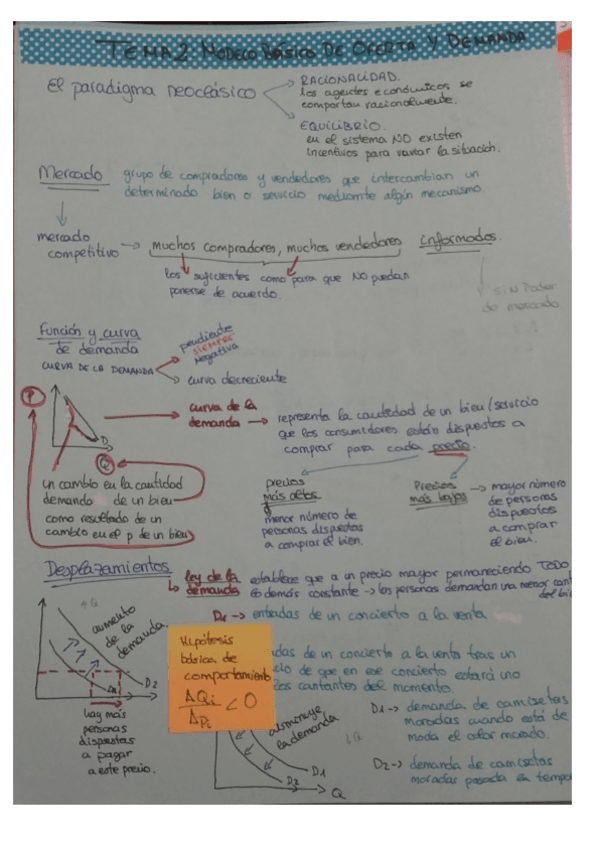 TEMA 2 MODELO BÁSICO DE OFERTA Y DEMANDA
El paradigma neoclásico
RACIONALIDAD.
los agentes económicos se
comportan racionalmente.
EQUILIBRIO.
en el sistema NO existen
incentivos para variar la situación.
Mercado
grupo de compradores y vendedores que intercambian un
determinado bien o servicio mediante algún mecanismo.
mercado
competitivo → muchos compradores, muchos vendedores informados.
los suficientes como para que NO puedan
ponerse de acuerdo.
SIN Poder
de mercado
Función y curva
de demanda
CURVA DE LA DEMANDA
pendiente
SIEMPRE
negativa
curva decreciente
P
D
Q
un cambio en la cantidad
demando de un bien
como resultado de un
cambio en el p de un bien
curva de la
demanda → representa la cantidad de un bien/servicio
que los consumidores están dispuestos a
comprar para cada precio.
precios
más altos
menor número de
personas dispuestas
a comprar el bien.
Precios
más bajos → mayor número
de personas
dispuestas
a comprar
el bien.
Desplazamientos
ley de la
demanda
establece que a un precio mayor permaneciendo TODO
lo demás constante → las personas demandan una menor cant
del bi
aumento
de la
demanda.
D1
D2
hay más
personas
dispuestas
a pagar
a este precio.
D1 → entradas de un concierto a la venta
das de un concierto a la venta tras un
cio de que en ese concierto estará uno
os cantantes del momento.
Hipótesis
básica de
comportamiento
ΔQi
/ΔPi < 0
disminuye
la demanda
D1
D2
Q
D1 → demanda de camisetas
moradas cuando está de
moda el color morado.
D2 → demanda de camisetas
moradas pasada la tempo